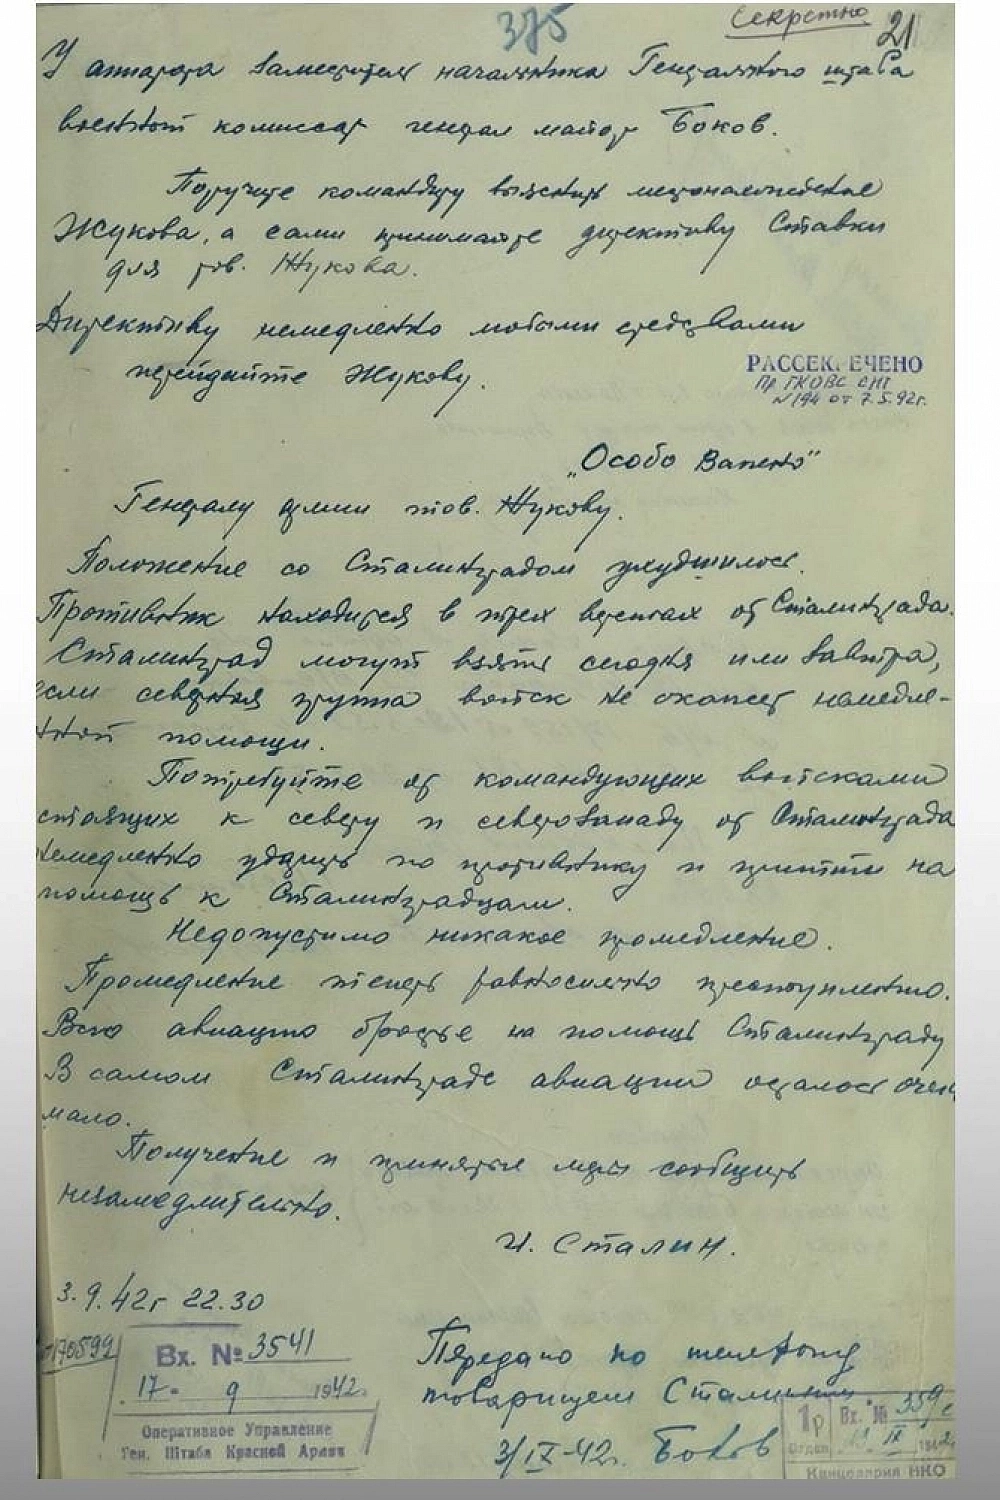 375
Секретно
21
У аппарата заместитель начальника Генерального штаба
военный комиссар генерал майор Боков.
Поручите командиру выяснить местонахождение
Жукова, а сами принимайте директиву Ставки
для тов. Жукова.
Директиву немедленно любыми средствами
передайте Жукову.
РАССЕКРЕЧЕНО
Пр ГКОВС СНГ
№194 от 7.5.92г.
"Особо Важно"
Генералу армии тов. Жукову.
Положение со Сталинградом ухудшилось.
Противник находится в трех верстах от Сталинграда.
Сталинград могут взять сегодня или завтра,
если северная группа войск не окажет немедле-
нной помощи.
Потребуйте от командующих войсками
стоящих к северу и северозападу от Сталинграда
немедленно ударить по противнику и притти на
помощь к Сталинградцам.
Недопустимо никакое промедление.
Промедление теперь равносильно преступлению.
Всю авиацию бросьте на помощь Сталинграду
В самом Сталинграде авиации осталось очень
мало.
Получение и принятые меры сообщить
незамедлительно.
И. Сталин.
3.9.42г 22.30
170599
Вх. № 3541
17. 9 1942г.
Оперативное Управление
Ген. Штаба Красной Армии
Передано по телефону
товарищем Сталиным
3/IX-42г. Боков
1р Отдел
Вх. № 359с
IX 1942
Канцелярия НКО